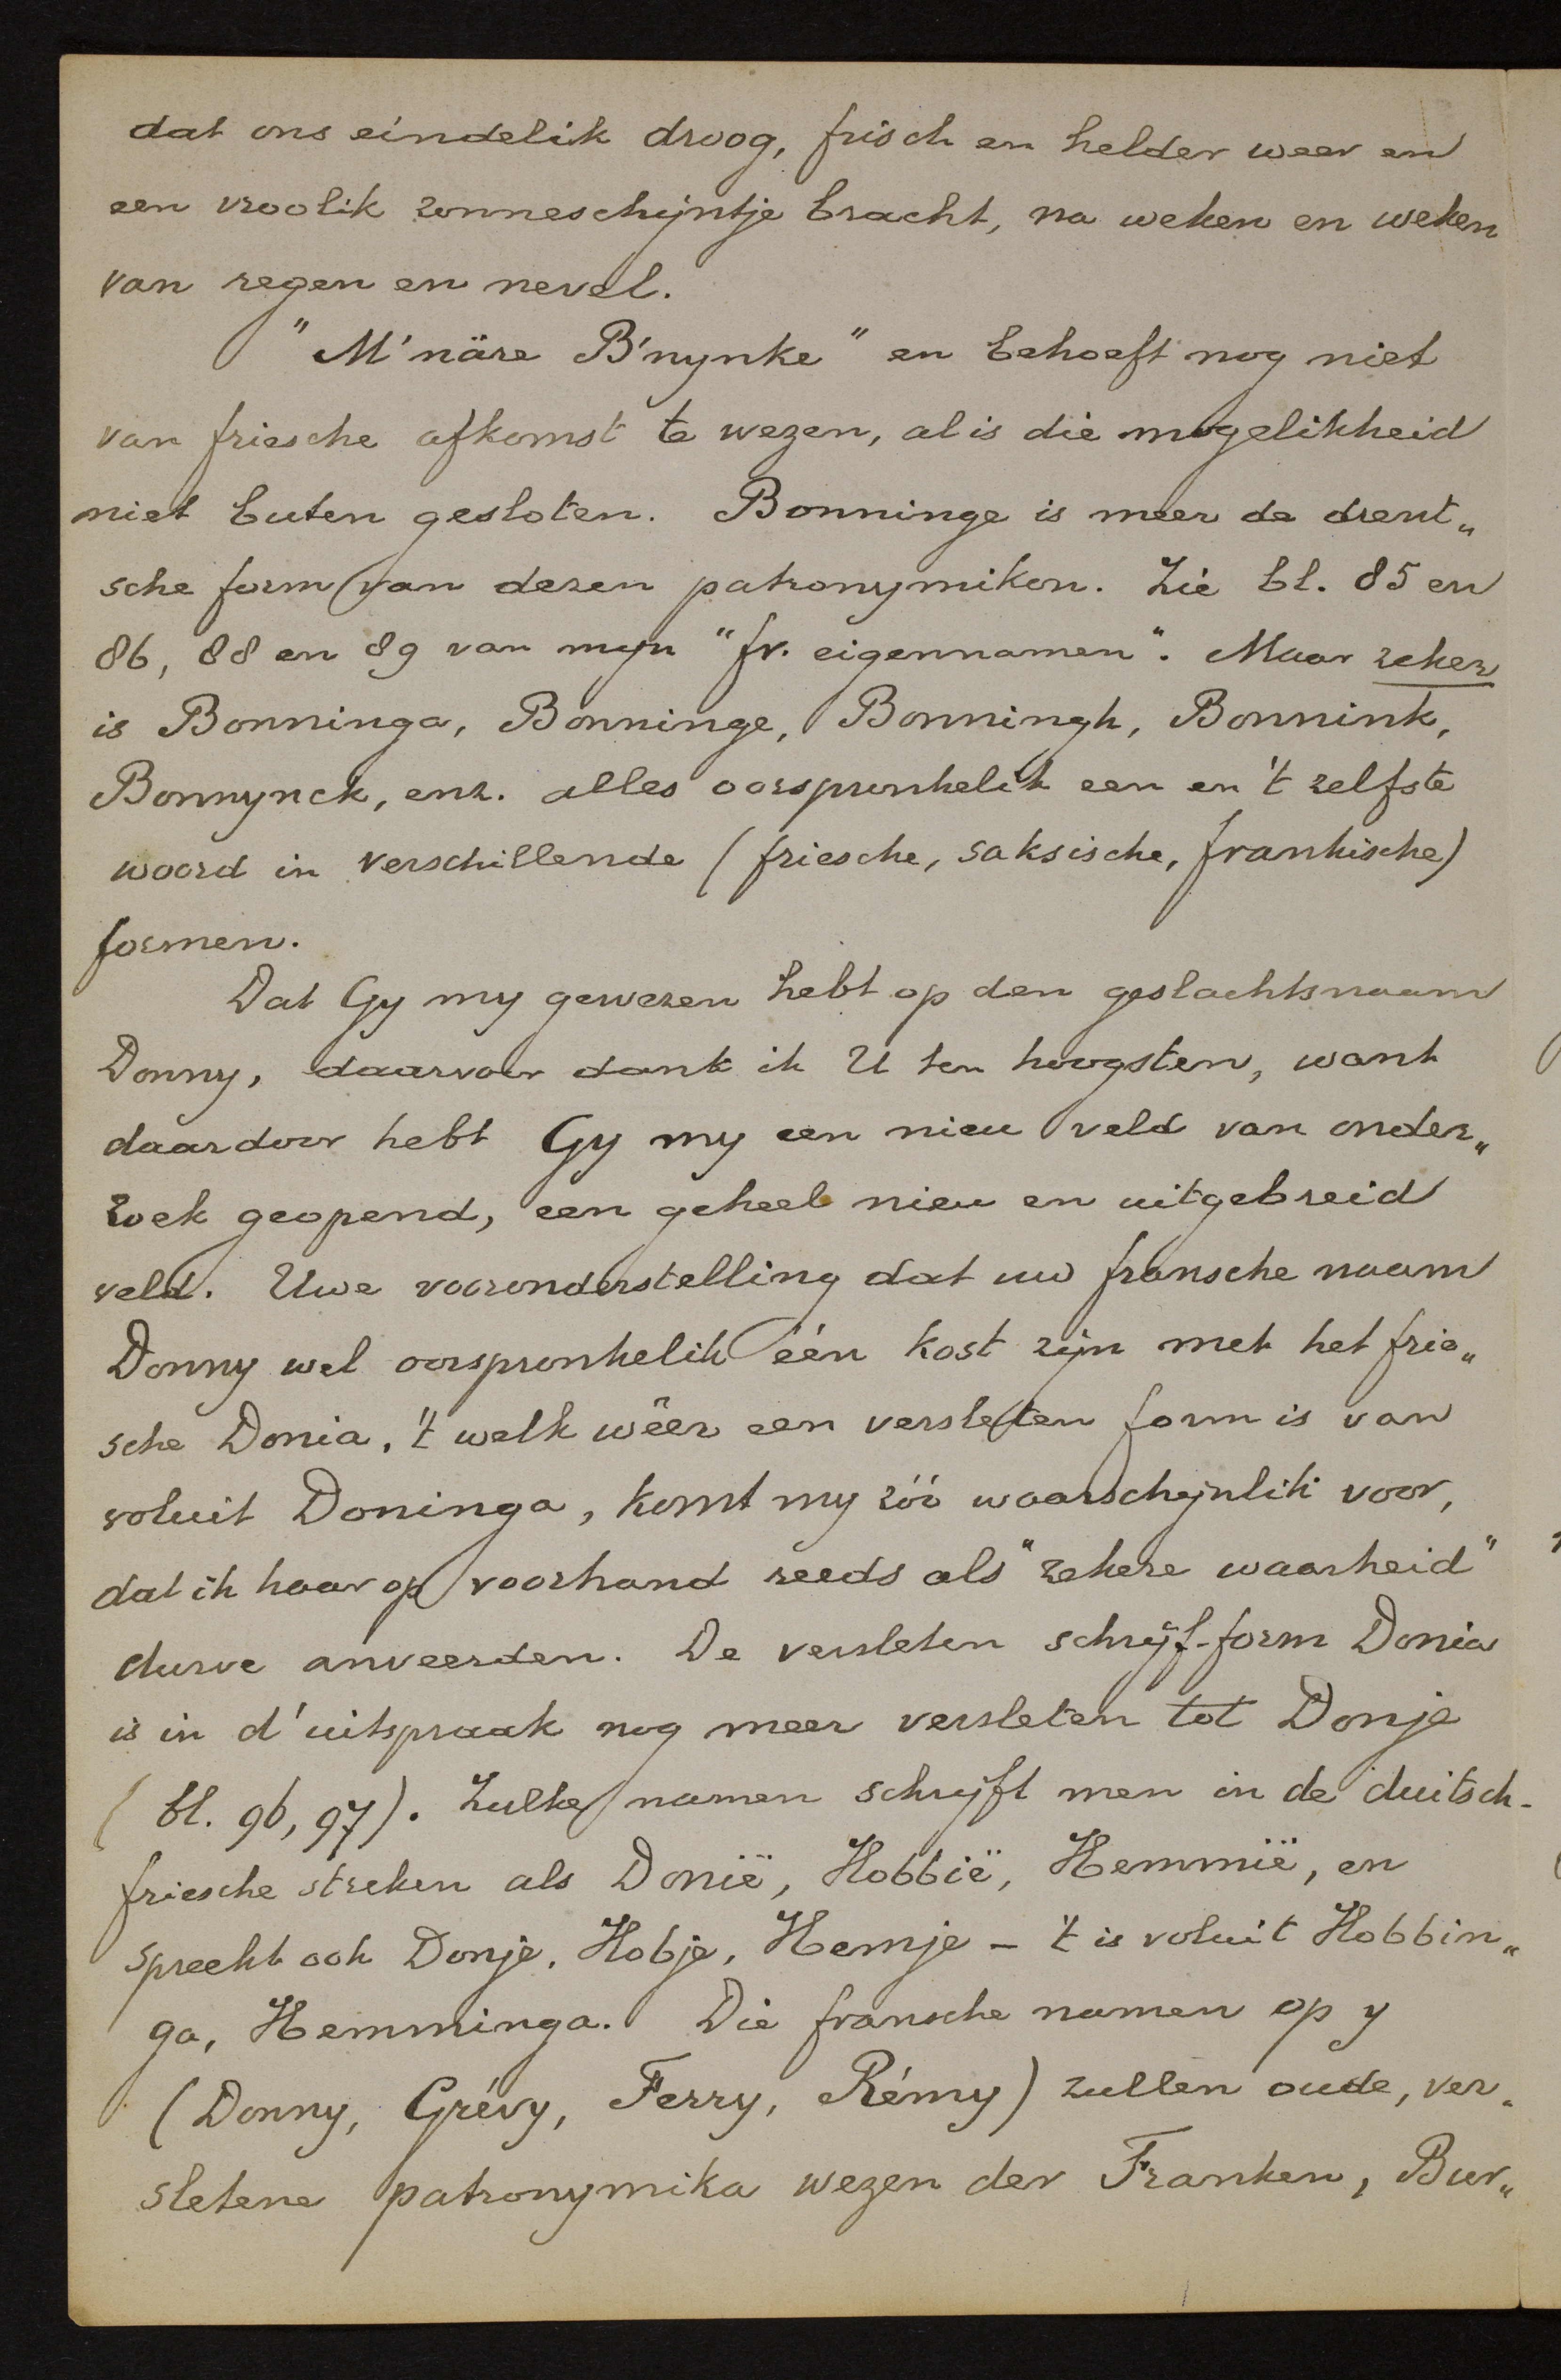 dat ons eindelik droog, frisch en helder weer en
een vroolik zonneschijntje bracht, na weken en weken
van regen en nevel.
"M'näre B'nynke" en behoeft nog niet
van friesche afkomst te wezen, al is die mogelikheid
niet buten gesloten. Bonninge is meer de drent„
sche form van dezen patronymikon. Zie bl. 85 en
86, 88 en 89 van myn "fr. eigennamen". Maar zeker
is Bonninga, Bonninge, Bonningh, Bonnink,
Bonnynck, enz. alles oorspronkelik een en 't zelfste
woord in verschillende (friesche, saksische, frankische)
formen.
Dat Gy my gewezen hebt op den geslachtsnaam
Donny, daarvoor dank ik U ten hoogsten, want
daardoor hebt Gy my een nieu veld van onder„
zoek geopend, een geheel nieu en uitgebreid
veld. Uwe vooronderstelling dat uw fransche naam
Donny wel oorspronkelik één kost zijn met het frie„
sche Donia, 't welk wêer een versleten form is van
voluit Doninga, komt my zóó waarschynlik voor,
dat ik haar op voorhand reeds als "zekere waarheid"
durve anveerden. De versleten schrijf-form Donia
is in d'uitspraak nog meer versleten tot Donje
(bl. 96, 97). Zulke namen schryft men in de duitsch-
friesche streken als Donië, Hobbië, Hemmië, en
spreekt ook Donje, Hobje, Hemje - 't is voluit Hobbin„
ga, Hemminga. Die fransche namen op y
(Donny, Grévy, Ferry, Rémy) zullen oude, ver„
sletene patronymika wezen der Franken, Bur„